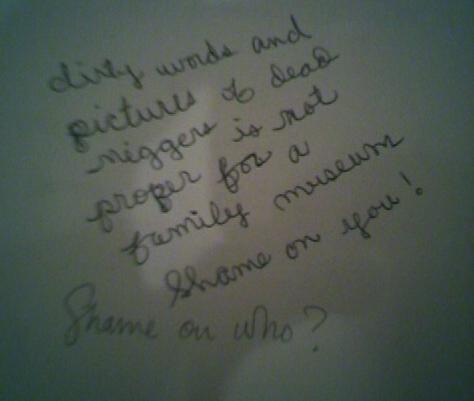 dirty words and
pictures of dead
niggers is not
proper for a
family museum
Shame on you!
Shame on who?